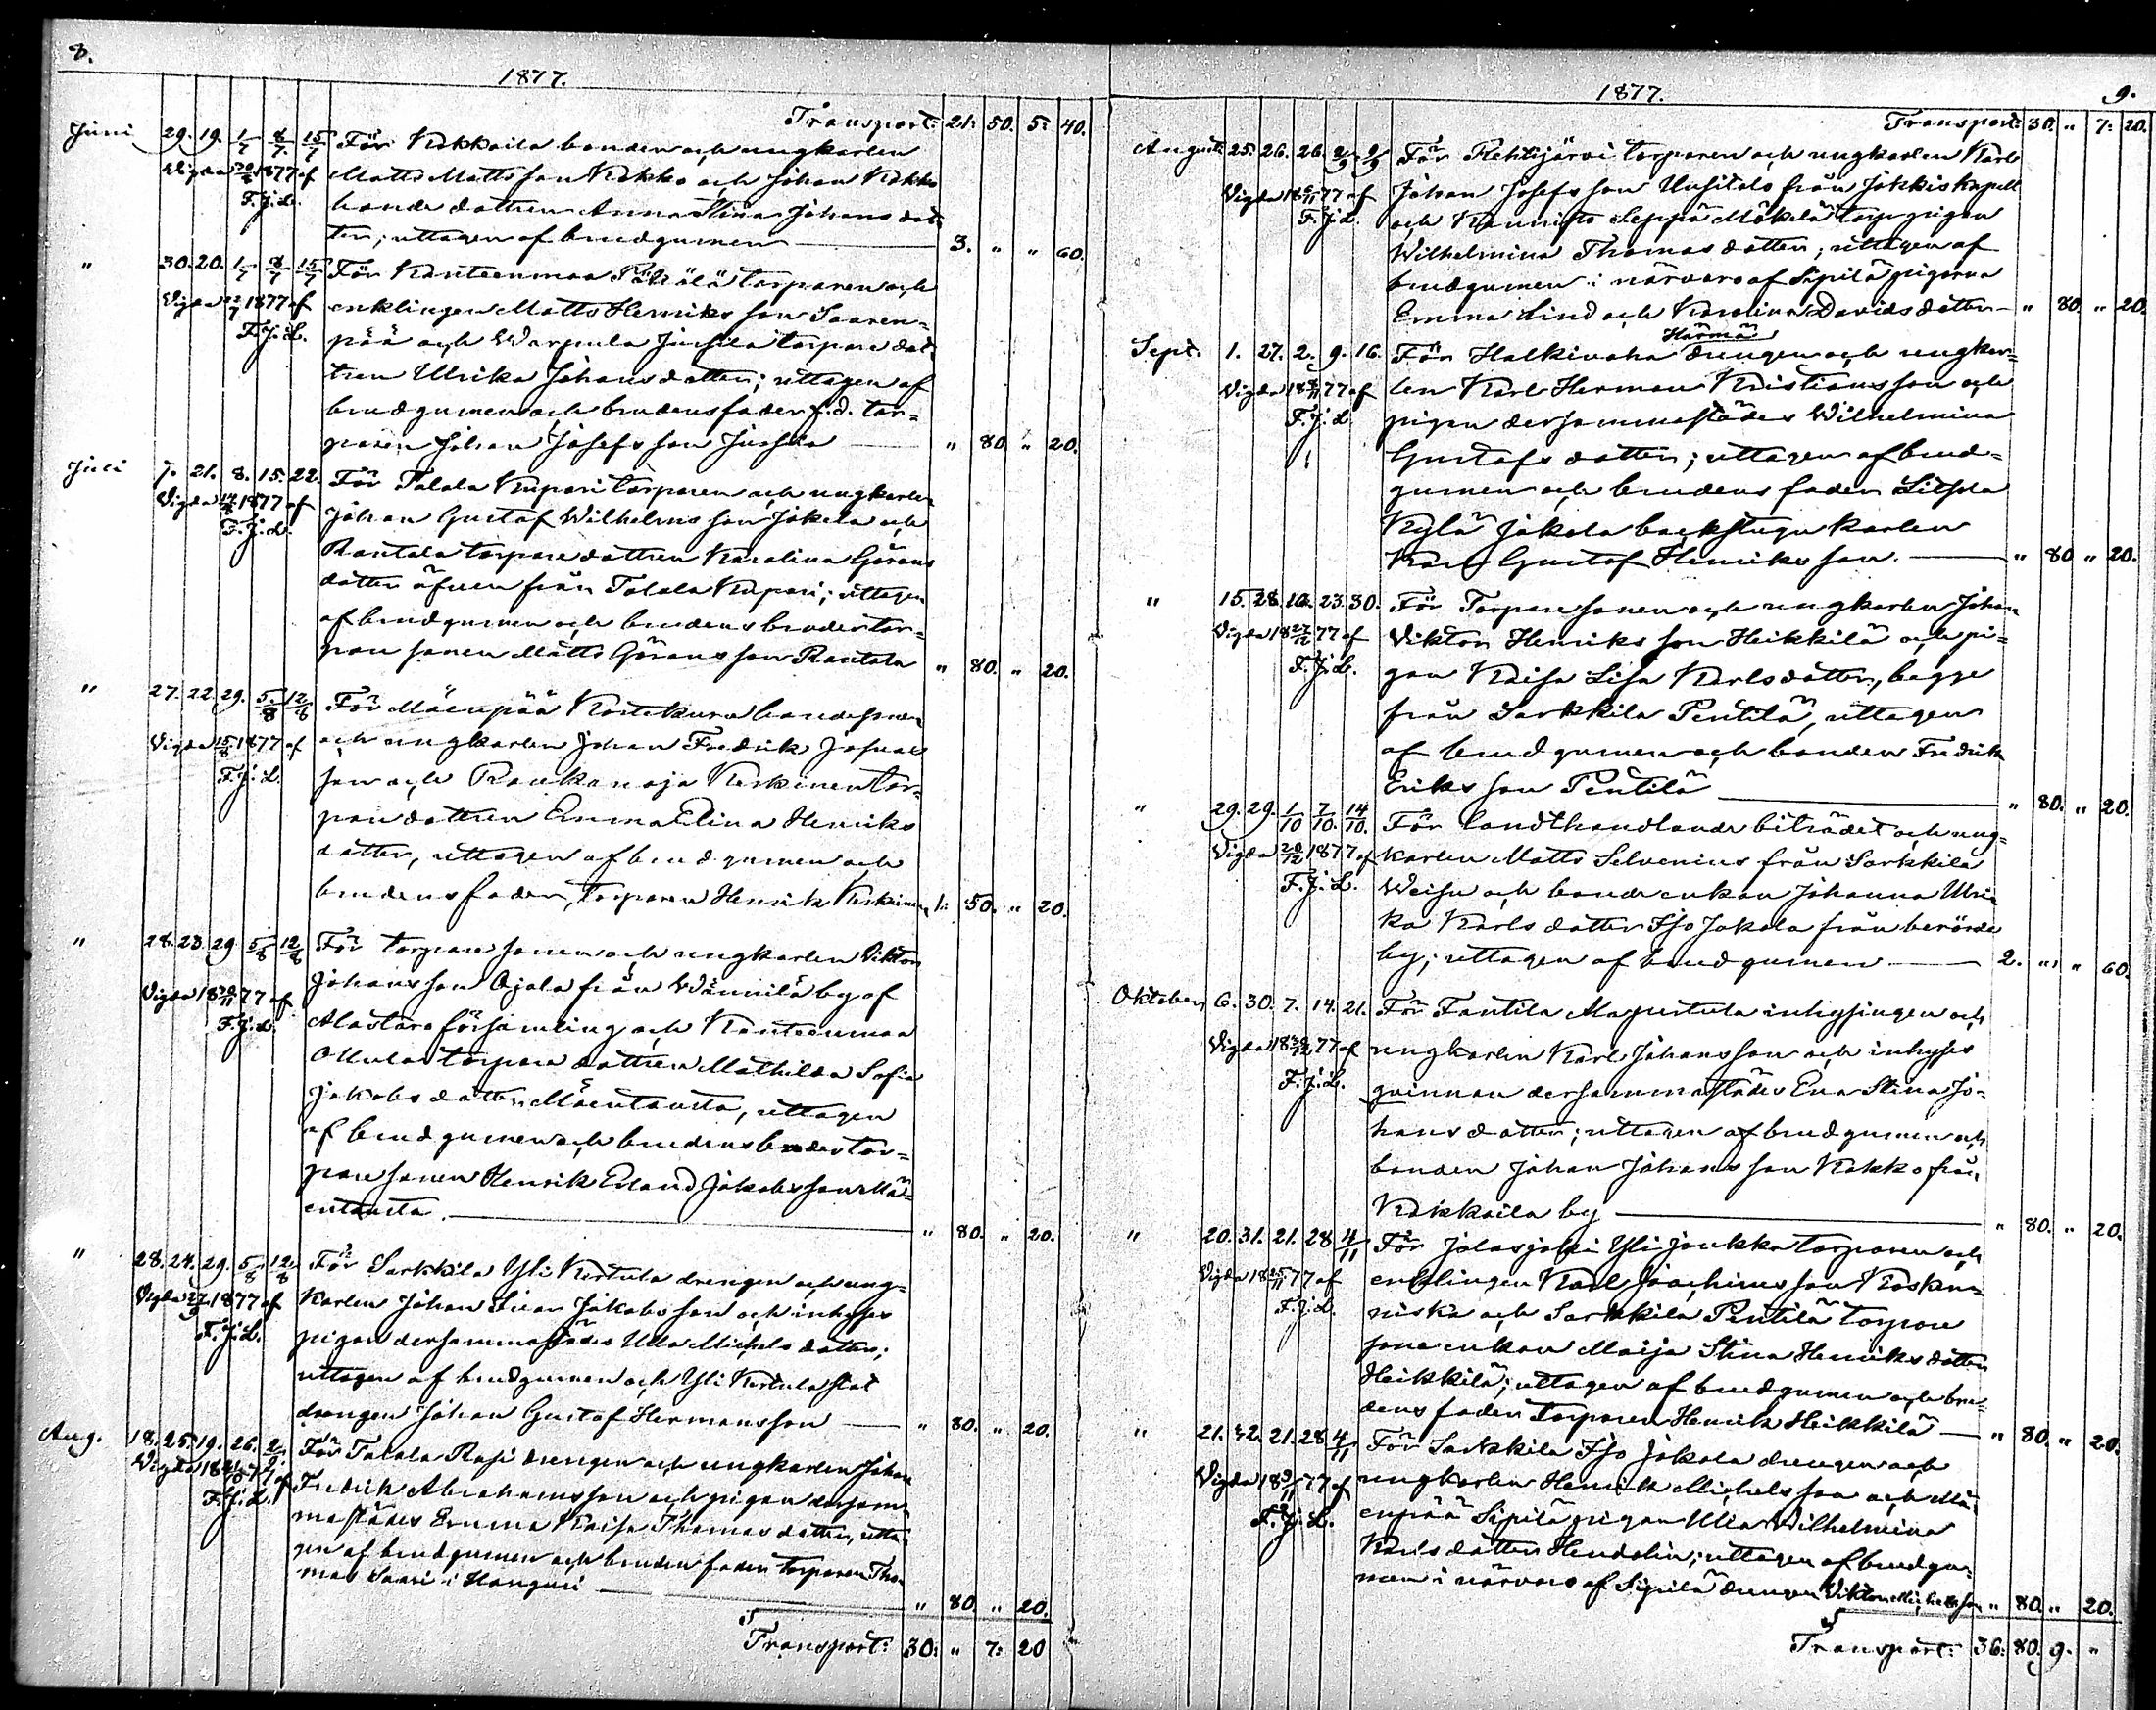 8.
1877.
Transport: 21: 50. 5: 40.
Juni 29. 19. 1/7 8/7. 15/7 För Kokkoila bonden och ungkarlen
Vigda 1877 af Matts Mattsson Kokko och Johan Kokko
F. J. L. bonde dottren Anna Stina Johans dot
ter; uttagen af brudgumen — 3. " " 60.
" 30. 20. 1/7 8/7 15/7 För Kanteenmaa torparen och
Vigda 1877 af enklingen Matts Henriks son Saaren=
F. J. L. pää och Warpula Jussila torpare dot
tren Ulrika Johans dotter; uttagen af
brudgumen och brudens fader f. d. tor=
paren Johan Josefs son Jussila — " 80. " 20.
Juli 7. 21. 8. 15. 22. För Talala Kupari torparen och ungkarlen
Vigda 1877 af Johan Gustaf Wilhelms son Jokela och
F. J. L. Rantala torpare dottren Karolina Görans
dotter äfven från Talala Kupari; uttagen
af brudgumen och brudens broder tor=
pare sonen Matts Görans son Rantala " 80. " 20.
" 27. 22. 29. 5/8 12/8 För Mäenpää bondesonen
Vigda 15/8 1877 af och ungkarlen Johan Fredrik
F. J. L. son och Raukanoja Keskinen tor=
pare dottren Emma Elina Henriks
dotter, uttagen af brudgumen och
brudens fader, torparen Henrik Keskinen 1: 50. " 20.
" 28. 23. 29 5/8 12/8 För torpare sonen och ungkarlen Viktor
Vigda 1877 af Johansson Ojala från Wännilä by af
F. J. L. Alastaro församling och Kanteenmaa
Ollula torpare dottren Mathilda Sofia
Jakobs dotter Mäentausta, uttagen
af brudgumen och brudens broder tor=
pare sonen Henrik Erland Jakobs son Mä=
entausta. — " 80. " 20.
" 28. 24. 29. 5/8 12/8 För Sarkkila Yli Kertula drengen och ung=
Vigda 1877 af karlen Johan Jakobs son och inhyses
F. J. L. pigan dersammastädes Ulla Michels dotter;
uttagen af brudgumen och Yli Kertula stat
drengen Johan Gustaf Hermansson — " 80. " 20.
Aug. 18. 25. 19. 26. 2/9. För Talala Rasi drengen och ungkarlen Johan
Vigda 1877 af Fredrik Abrahamsson och pigan dersam
F. J. L. mastädes Emma Kaisa Thomas dotter, utta
gen af brudgumen och brudens fader torparen Tho
mas Saari i — " 80. " 20.
Transport: 30: " 7: 20
1877. 9.
Transport: 30. " 7: 20.
Augusti 25. 26. 26. 2/9 9/9 För Rehtijärvi torparen och ungkarlen Karl
Vigda 1877 af Johan Josefs son Uusitalo från Jokkis kapell
F. J. L. och Kannisto Seppä Mäkelä torp pigan
Wilhelmina Thomas dotter; uttagen af
brudgumen i närvaro af Sipilä pigorna
Emma Lind och Karolina Davids dotter — " 80. " 20.
Härmä
Sept. 1. 27. 2. 9. 16. För Halkivaha drengen och ungkar=
Vigda 1877 af len Karl Herman Kristians son och
F. J. L. pigan dersammastädes Wilhelmina
Gustafs dotter; uttagen af brud=
gumen och brudens fader
Kylä Jokela backstugu karlen
Karl Gustaf Henriks son. — " 80 " 20.
" 15. 28. 16. 23. 30. För Torpare sonen och ungkarlen Johan
Vigda 1877 af Viktor Henriks son Heikkilä och pi=
F. J. L. gan Kaisa Lisa Karls dotter, begge
från Sarkkila Pentilä, uttagen
af brudgumen och bonden Fredrik
Eriks son Pentilä — " 80. " 20.
" 29. 29. 1/10 7/10. 14/10. För Landthandlande biträdet och ung=
Vigda 20/12 1877 af karlen Matts Selvenius från Sarkkila
F. J. L. och bonde enkan Johanna Ulri
ka Karls dotter Iso Jakola från berörde
by; uttagen af brudgumen — 2. " " 60.
Oktober 6. 30. 7. 14. 21. För Fantila inhysingen och
Vigda 1877 af ungkarlen Karl Johansson och inhyses
F. J. L. qvinnan dersammastädes Eva Stina Jo=
hans dotter; uttagen af brudgumen och
bonden Johan Johans son Kokko från
Kokkoila by — " 80. " 20.
" 20. 31. 21. 28 4/11 För Jalasjoki Yli Joukka torparen och
Vigda 1877 af enklingen Karl Joachims son Kosken=
F. J. L. niska och Sarkkila Pentilä torpare
sons enkan Maija Stina Henriks dotter
Heikkilä; uttagen af brudgumen och bru=
dens fader torparen Henrik Heikkilä — " 80. " 20.
" 21. 32. 21. 28 4/11 För Sarkkila Iso Jokola drengen och
Vigda 1877 af ungkarlen Henrik Michels son och Mä=
F. J. L. enpää Sipilä pigan Ulla Wilhelmina
Karls dotter Hendolin; uttagen af brudgu=
men i närvaro af Sipilä drengen Viktor Michelsson " 80. " 20.
Transport: 36: 80. 9. "